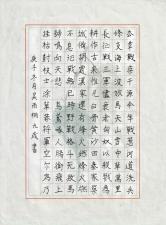 去年戰桑干源今年戰蔥河道洗兵
條支海上波放馬天山雪中草萬里
長征戰三軍盡衰老匈奴以殺戮為
耕作古來惟見白骨黃沙田秦家築
城備胡處漢家還有烽火燃烽火燃
不息征戰無已時野戰格鬥死敗馬
號鳴向天悲烏鳶啄人腸銜飛上
挂枯樹枝士卒塗草莽將軍空爾為
庚子冬月吳雨桐九歲書